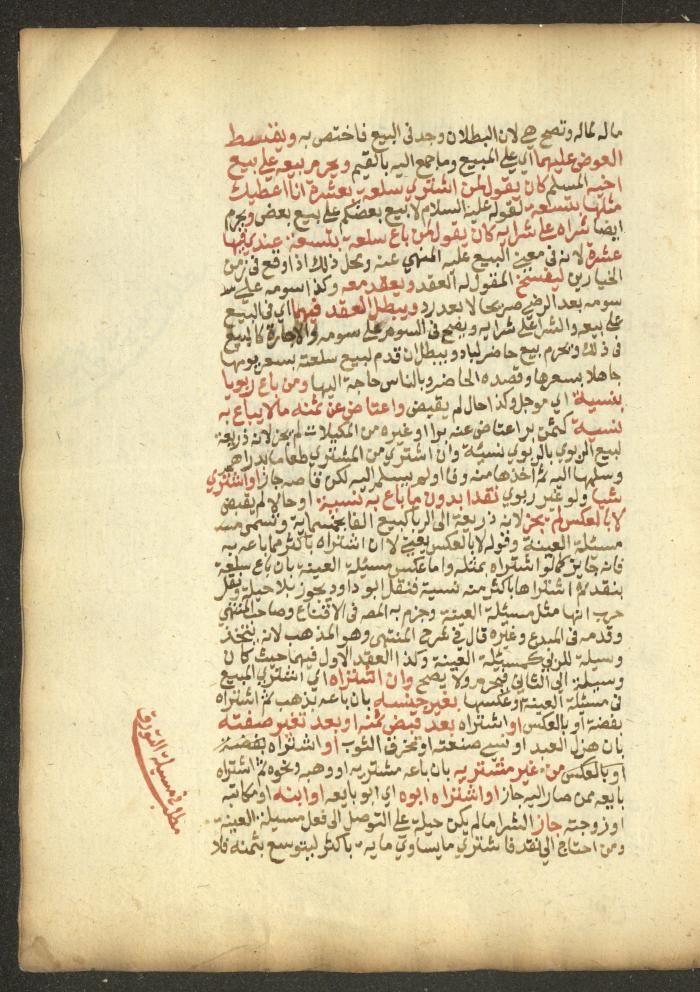 ماله لماله وتصح هي لان البطلان وجد في البيع فاختص به ويقسط
العوض عليهما اي على المبيع وما جمع اليه بالقيم ويحرم بيعه على بيع
اخيه المسلم كان يقول لمن اشترى سلعة بعشرة انا اعطيك
مثلها بتسعة لقوله عليه السلام لا يبيع بعضكم على بيع بعض ويحرم
ايضا شراه على شرايه كان يقول لمن باع سلعة بتسعة عندي فيها
عشرة لانه في معنى البيع عليه المنهي عنه ومحل ذلك اذا وقع في زمن
الخيارين ليفسخ المقول له العقد ويعقد معه وكذا سومه على
سومه بعد الرضى صريحا لا بعد رد ويبطل العقد فيهما اي في البيع
على بيعه والشرا على شرايه ويصح في السوم على سومه والاجارة كالبيع
في ذلك ويحرم بيع حاضر لباد ويبطل ان قدم لبيع سلعته بسعر يومها
جاهلا بسعرها وقصده الحاضر وبالناس حاجة اليها ومن باع ربويا
بنسيئة اي موجل وكذا حال لم يقبض واعتاض عن ثمنه ما لا يباع به
نسيئة كثمن بر اعتاض عنه برا او غيره من المكيلات لم يجز لانه ذريعة
لبيع الربوي بالربوي نسيئة وان اشترى من المشتري طعاما بدراهم
وسلمها اليه ثم اخذها منه وفا او لم يسلم اليه لكن قاصه جاز او اشترى
شيا ولو غير ربوي نقدا بدون ما باع به نسيئة او حالا لم يقبض
لا بالعكس لم يجز لانه ذريعة الى الربا كبيع الفا بخمسماية وتسمى
مسئلة العينة وقوله لا بالعكس يعني لا ان اشتراه باكثر مما باعه به
فانه جايز كما لو اشتراه بمثله واما عكس مسئلة العينة بان باع سلعة
بنقد ثم اشتراها باكثر منه نسية فنقل ابو داود يجوز بلا حيلة ونقل
حرب انها مثل مسئلة العينة وجزم به المص في الاقناع وصاحب المنتهى
وقدمه في المبدع وغيره قال في شرح المنتهى وهو المذهب لانه يتخذ
وسيلة للربا كمسئلة العينة وكذا العقد الاول فيهما حيث كان
وسيلة الى الثاني فيحرم ولا يصح وان اشتراه اي اشترى المبيع
في مسئلة العينة او عكسها بغير جنسه بان باعه بذهب ثم اشتراه
بفضة او بالعكس او اشتراه بعد قبض ثمنه او بعد تغير صفته
بان هزل العبد او نسي صنعته او تخرق الثوب او اشتراه بفضة
او بالعكس من غير مشتريه بان باعه مشتريه او وهبه ونحوه ثم اشتراه
بايعه ممن صار اليه جاز او اشتراه ابوه اي ابو بايعه او ابنه او مكاتبه
او زوجته جاز الشرا ما لم يكن حيلة على التوصل الى فعل مسئلة العينة
ومن احتاج الى نقد فاشترى ما يساوي ماية باكثر ليتوسع بثمنه فلا
مطلب في مسئلة التورق